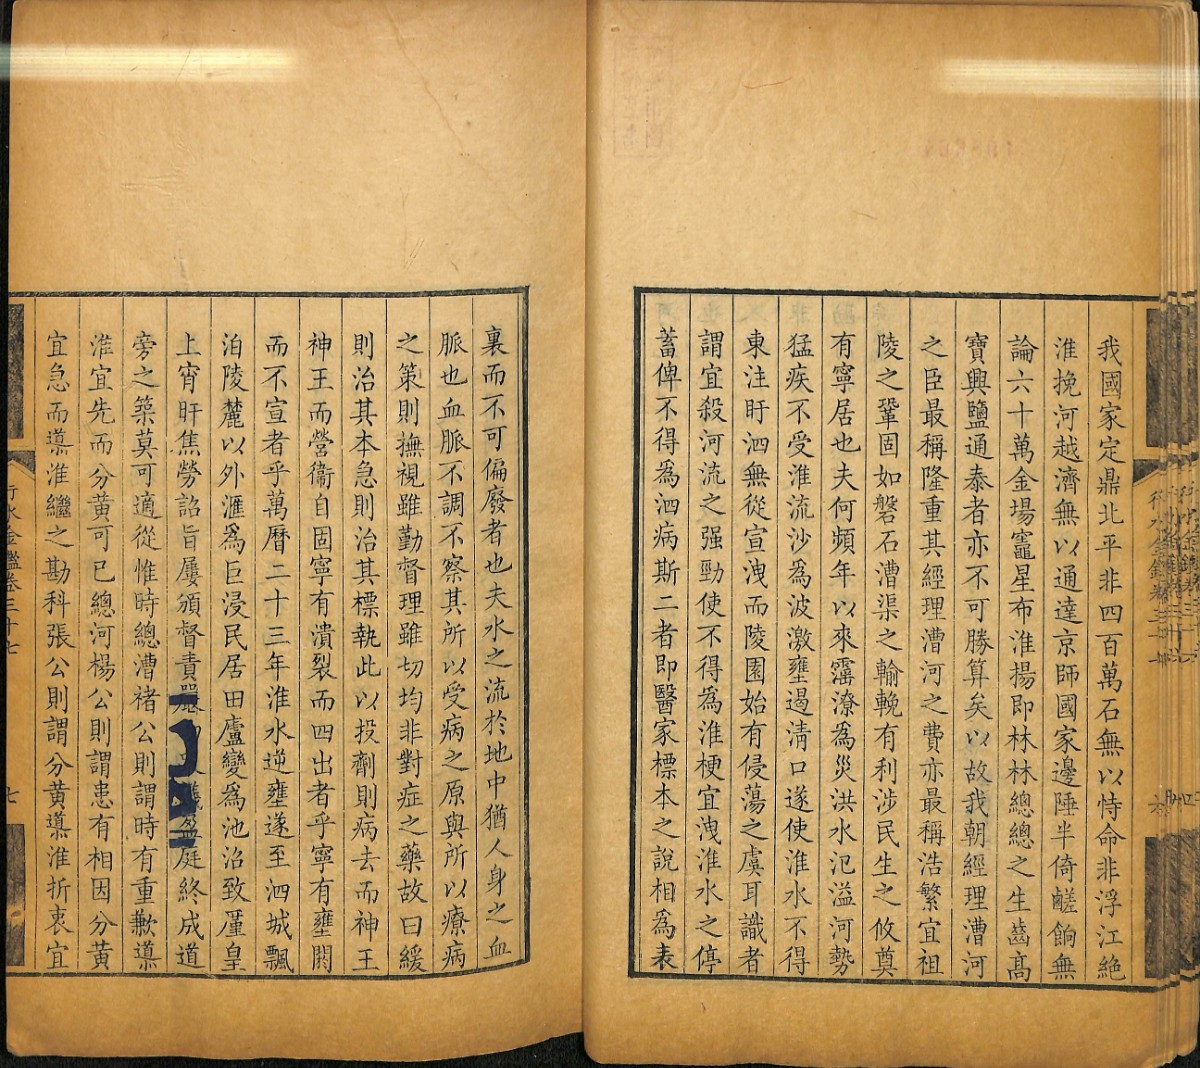 我國家定鼎北平非四百萬石無以恃命非浮江絶
淮挽河越濟無以通達京師國家邊陲半倚鹺餉無
論六十萬金場竈星布淮揚即林林總總之生齒高
寶興鹽通泰者亦不可勝算矣以故我朝經理漕河
之臣最稱隆重其經理漕河之費亦最稱浩繁宜祖
陵之鞏固如磐石漕渠之輸輓有利涉民生之攸奠
有寧居也夫何頻年以來霪潦為災洪水氾溢河勢
猛疾不受淮流沙為波激壅遏淸口遂使淮水不得
東注盱泗無從宣洩而陵園始有侵蕩之虞耳識者
謂宜殺河流之强勁使不得為淮梗宜洩淮水之停
蓄俾不得為泗病斯二者即醫家標本之說相為表
裏而不可偏廢者也夫水之流於地中猶人身之血
脈也血脈不調不察其所以受病之原與所以療病
之策則撫視雖勤督理雖切均非對症之藥故曰緩
則治其本急則治其標執此以投劑則病去而神王
神王而營衞自固寧有潰裂而四出者乎寧有壅閼
而不宣者乎萬曆二十三年淮水逆壅遂至泗城飄
泊陵麓以外滙為巨浸民居田廬變為池沼致厪皇
上宵旰焦勞詔旨屢頒督責議盈庭終成道
旁之築莫可適從惟時總漕褚公則謂時有重歉導
淮宜先而分黃可已總河楊公則謂患有相因分黃
宜急而導淮繼之勘科張公則謂分黃導淮折衷宜
行水金鑑卷三十七
七